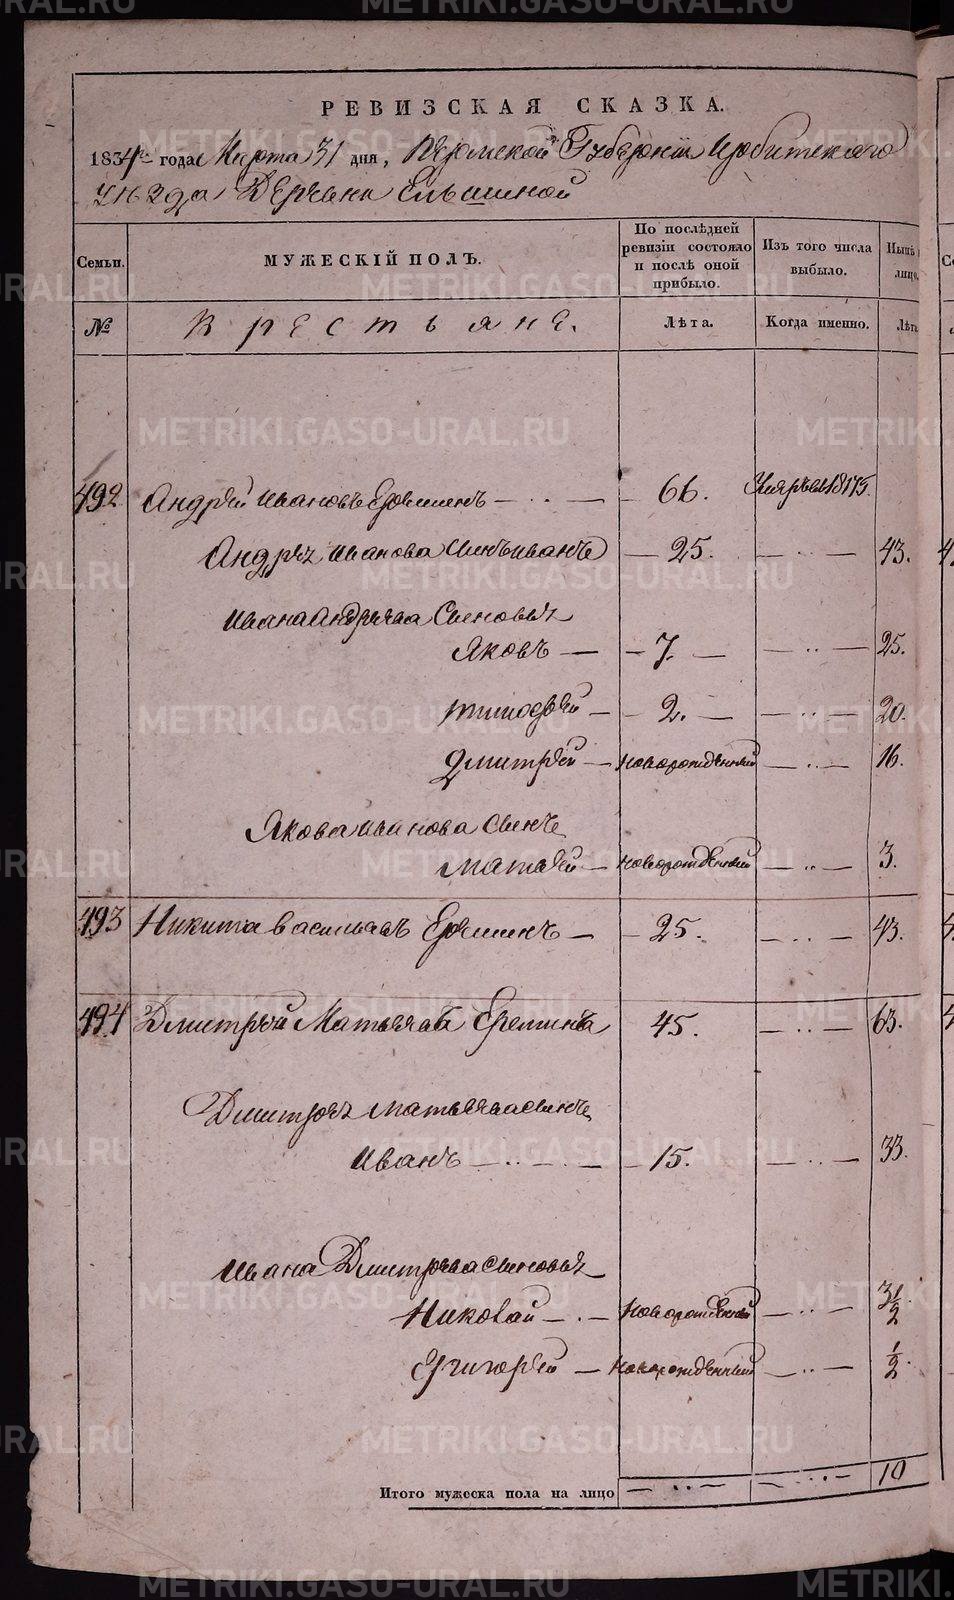 РЕВИЗСКАЯ СКАЗКА.
1834го года Марта 31 дня, Пермской Губернiи Ирбитскаго
уѣзда Деревни Ельшиной
Семьи. МУЖЕСКІЙ ПОЛЪ. По послѣдней ревизіи состояло и послѣ оной прибыло. Изъ того числа выбыло. Нынѣ лицо
№ Крестьяне. Лѣта. Когда именно. Лѣта
492 Андрей Ивановъ — 66.
Андрѣя Иванова Сынъ Иванъ — 25. — 43.
Ивана Андрѣева Сыновья
Яковъ — 7. — 25.
Тимофѣй — 2. — 20.
Дмитрѣй — новорожденный — 16.
Якова Иванова Сынъ
Матвѣй — новорожденный — 3.
493 Никита Васильевъ — 25. — 43.
494 Дмитрѣй Матвѣевъ Ереминъ 45. — 63.
Дмитрѣя Матвѣева сынъ
Иванъ — 15. — 33.
Ивана Дмитрѣева сыновья
Николай — Новорожденный — 3 1/2
Григорѣй — Новорожденный — 1/2.
Итого мужеска пола на лицо — 10
METRIKI.GASO-URAL.RU